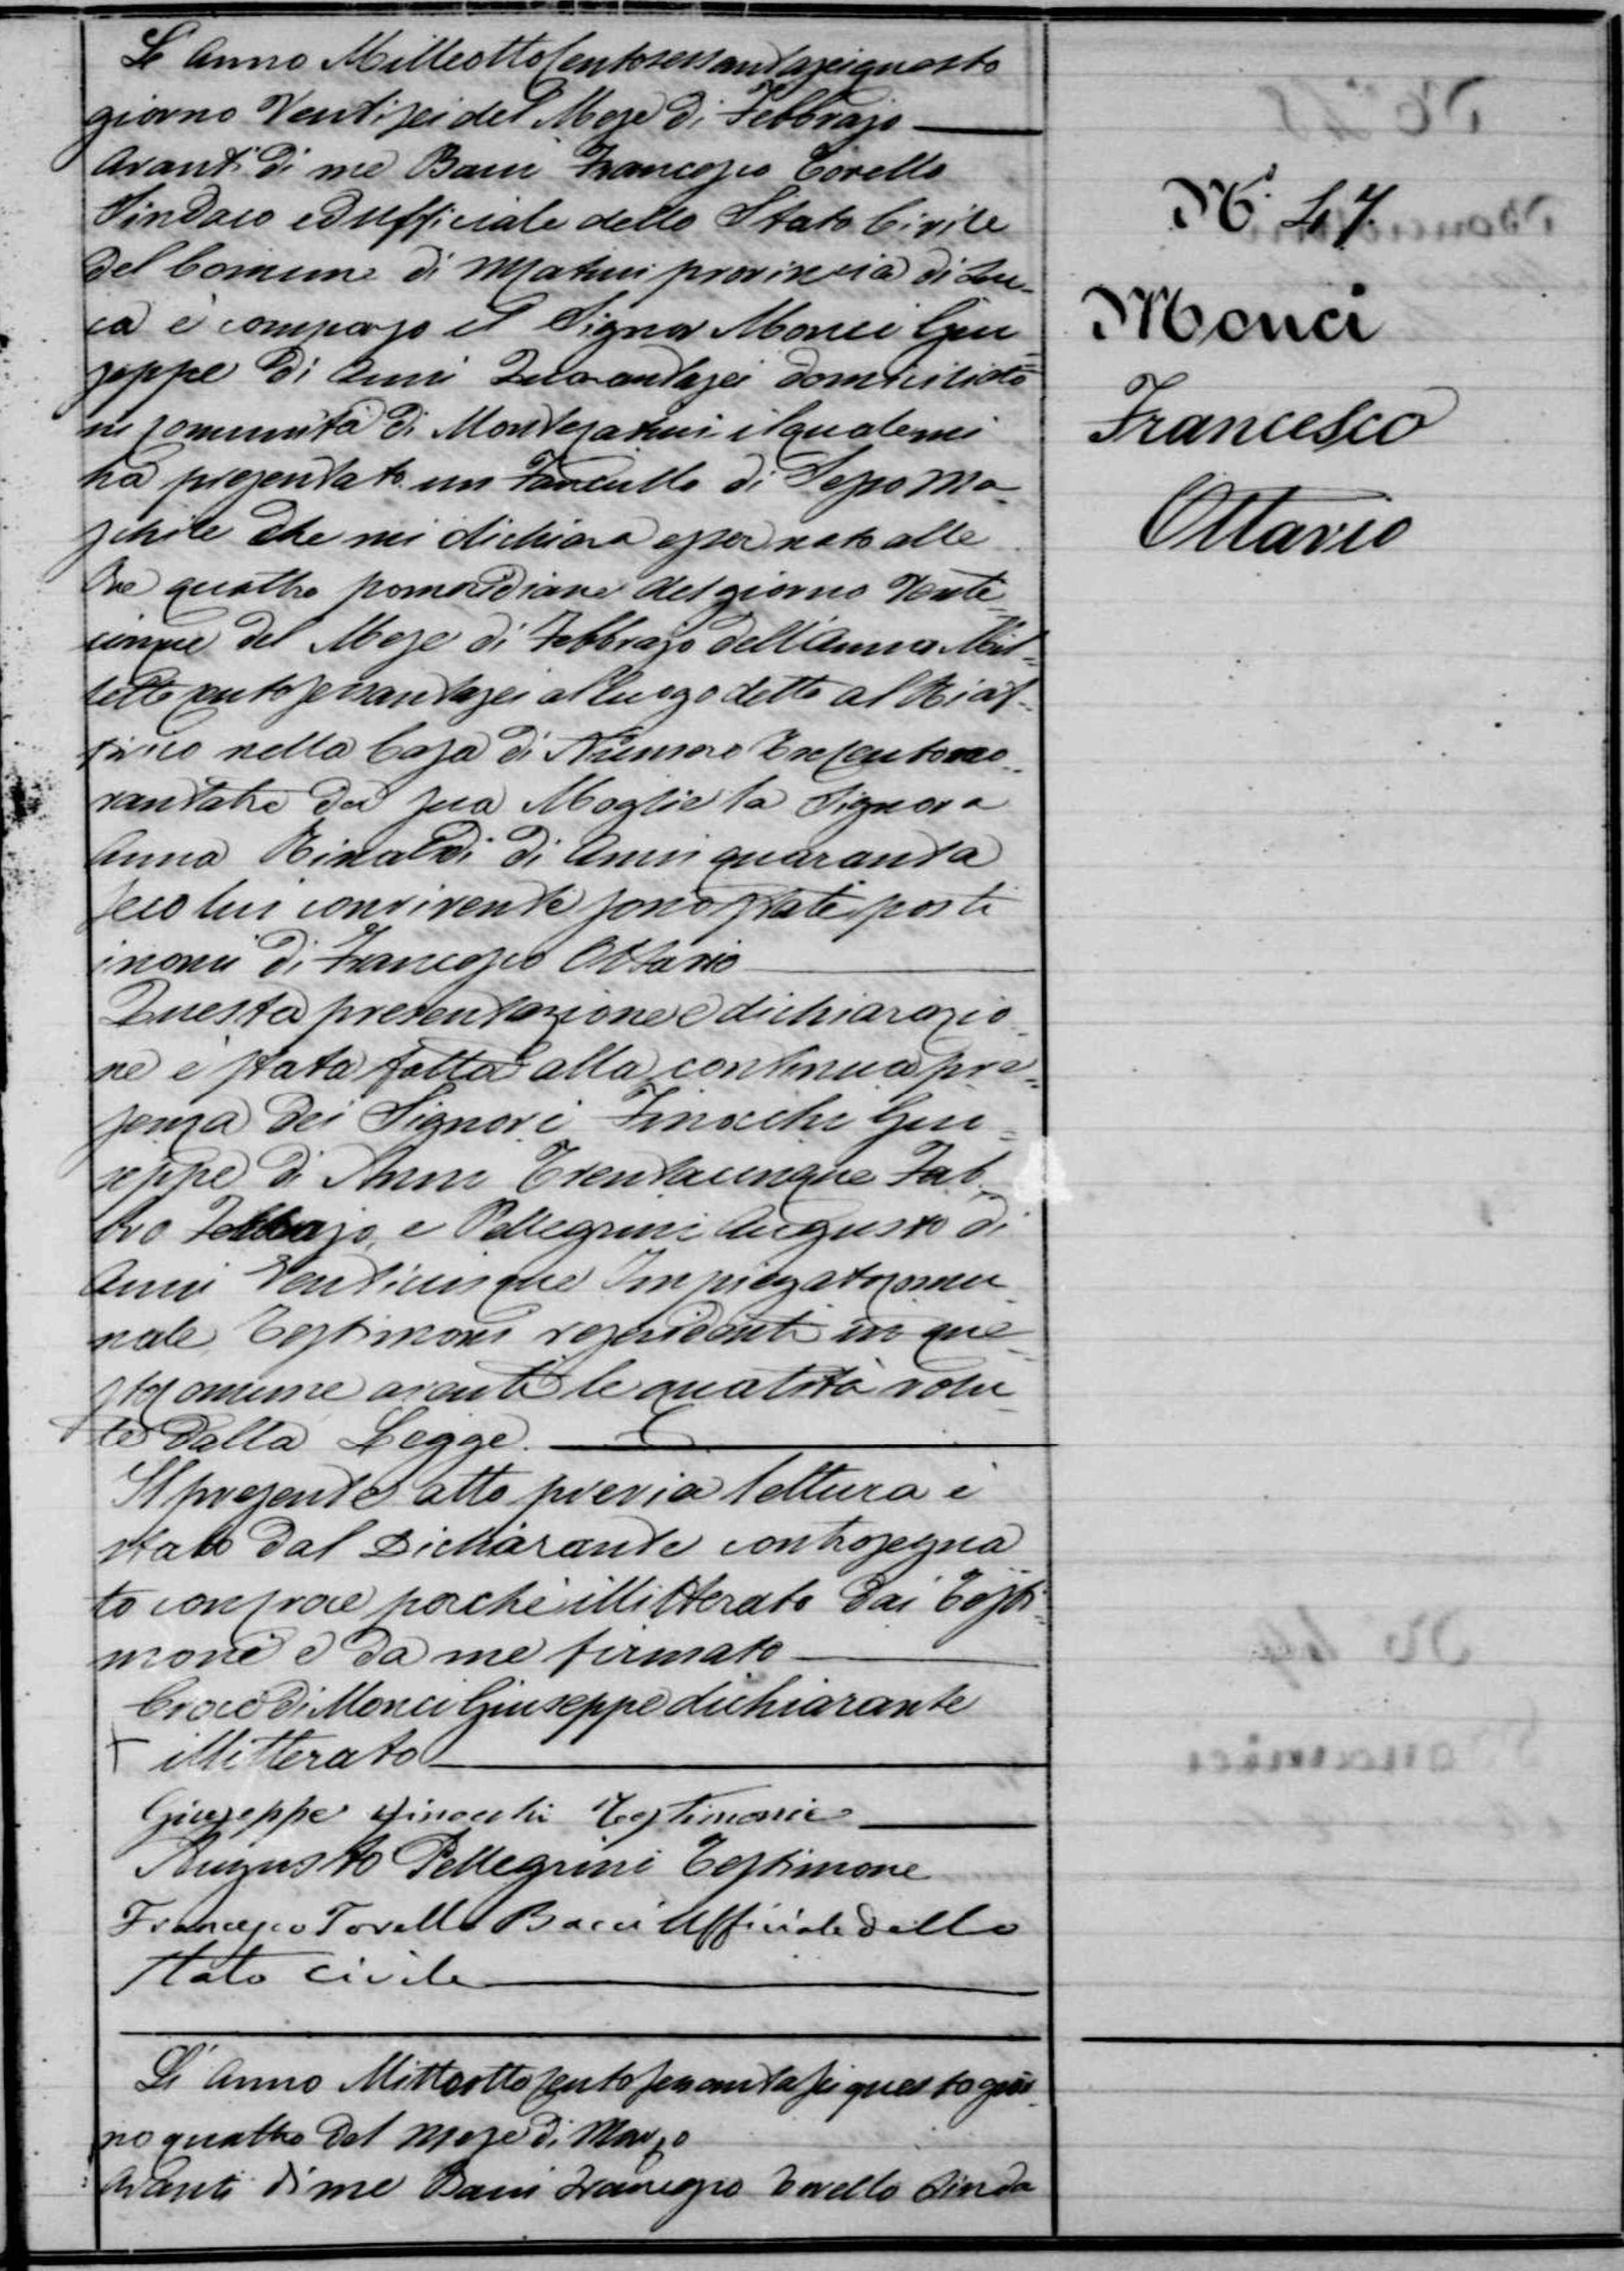 L'Anno Milleottocentosessantasei questo
giorno Ventisei del Mese di Febbrajo
Avanti di me Bacci Francesco Torello
Sindaco ed Ufficiale dello Stato Civile
del Comune di Massa provincia di Luc-
ca è comparso il Signor Monci Giu
seppe di Anni Quarantasei domiciliato
in Comunità di Montecatini il quale mi
ha presentato un Fanciullo di Sesso Ma-
schile che mi dichiara esser nato alle
Ore quattro pomeridiane del giorno Venti
cinque del Mese di Febbrajo dell'Anno Mil-
lottocentosessantasei al luogo detto al
nella Casa di Numero Trecentono-
vantatre da sua Moglie la Signora
Anna Rinaldi di Anni quaranta
seco lui convivente sono stati posti
i nomi di Francesco Ottavio
Questa presentazione e dichiarazio
ne è stata fatta alla continua pre-
senza dei Signori Finocchi Giu-
seppe di Anni Trentacinque Fab
bro Ferrajo, e Pellegrini Augusto di
Anni Venticinque Impiegato Comu
nale Testimoni residenti in que-
sto Comune aventi le qualità volu
te dalla Legge.
Il presente atto previa lettura è
stato dal Dichiarante controsegna
to con croce perchè illitterato dai Testi-
moni e da me firmato
Croce di Monci Giuseppe dichiarante
+ illitterato
Giuseppe Finocchi Testimonie
Augusto Pellegrini Testimone
Francesco Torello Bacci Ufficiale dello
Stato Civile
L'Anno Milleottocentosessantasei questo gior
no quattro del Mese di Marzo
Avanti di me Bacci Francesco Torello Sinda
N.° 47.
Monci
Francesco
Ottavio